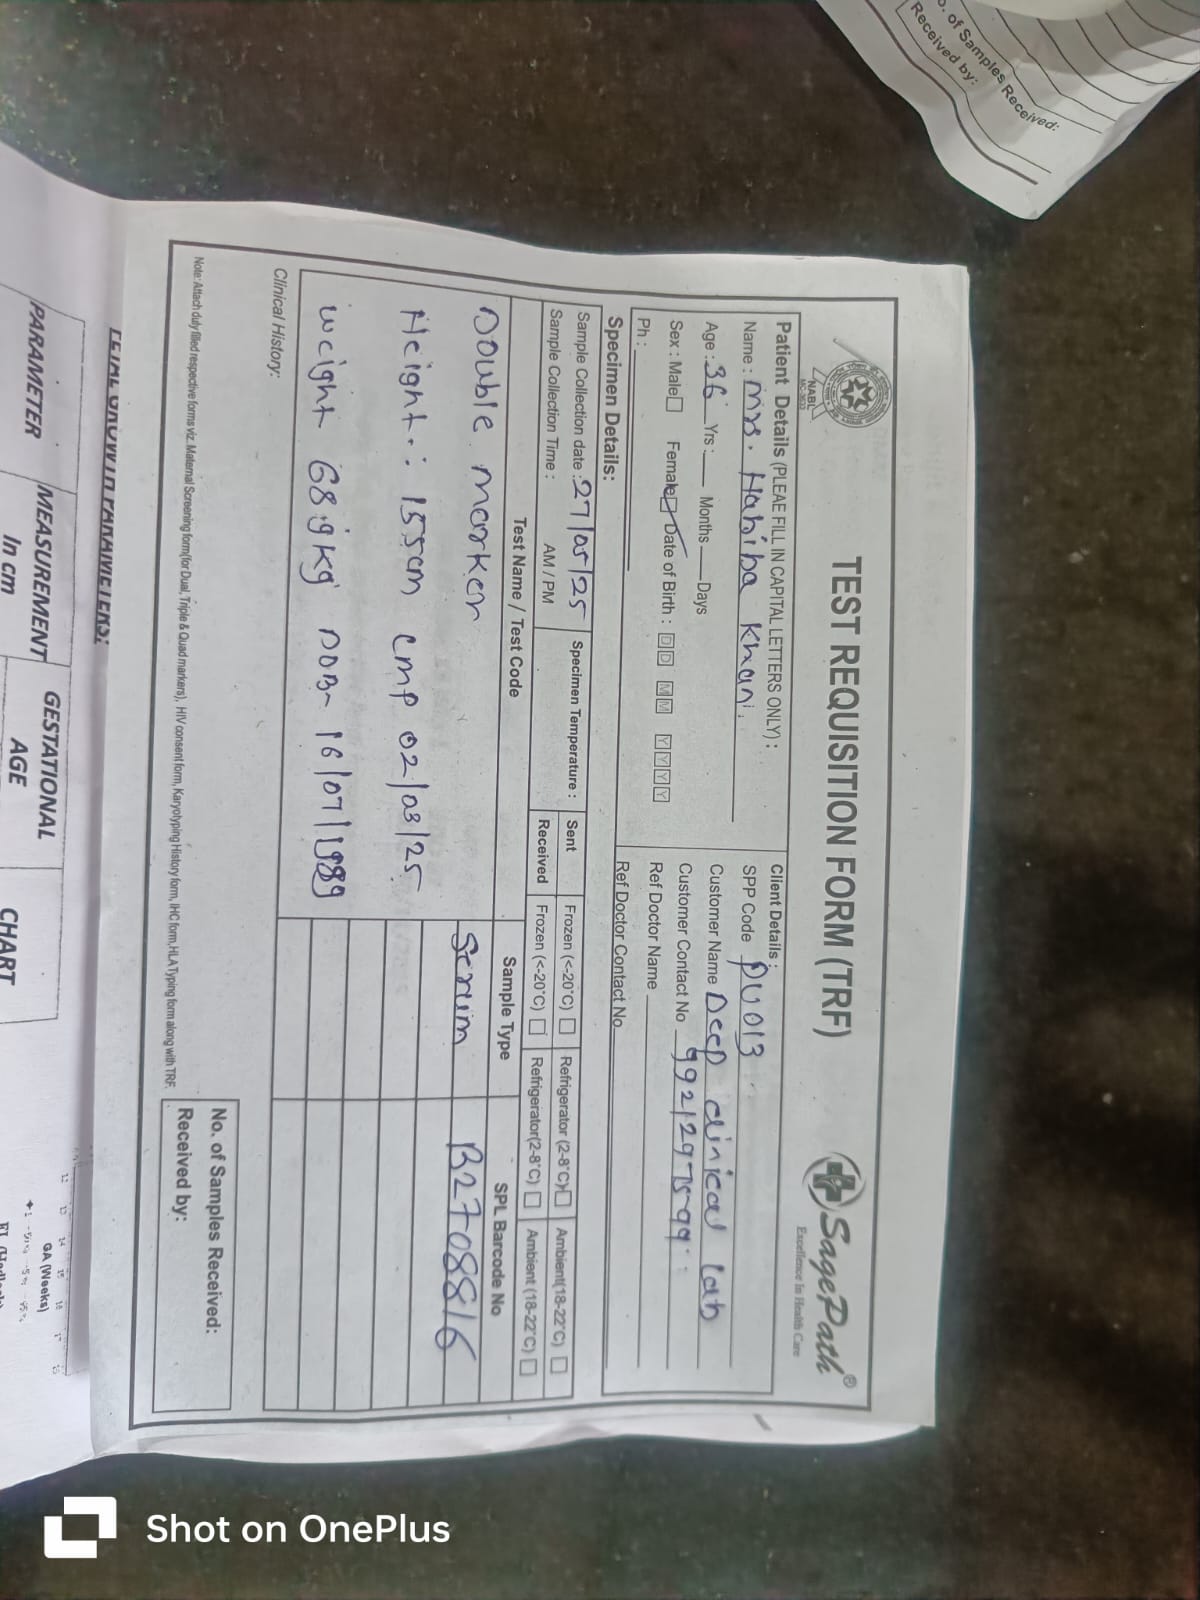 TEST REQUISITION FORM (TRF)
NABL
MC-3633
SagePath®
Excellence In Health Care
Patient Details (PLEAE FILL IN CAPITAL LETTERS ONLY) :
Name : Mrs. Habiba Khan
Age : 36 Yrs : Months Days
Sex : Male Female Date of Birth : DD MM YYYY
Ph :
Client Details :
SPP Code PU013
Customer Name Deep clinical lab
Customer Contact No
Ref Doctor Name
Ref Doctor Contact No
Specimen Details:
Sample Collection date : 27/05/25
Sample Collection Time : AM / PM
Specimen Temperature :
Sent Frozen (<-20°C) Refrigerator (2-8°C) Ambient(18-22°C)
Received Frozen (<-20°C) Refrigerator(2-8°C) Ambient (18-22°C)
Test Name / Test Code Sample Type SPL Barcode No
Double marker Serum B2708816
Height : 155cm LMP 02/03/25
Weight 68.9kg DOB- 16/07/1989
Clinical History:
No. of Samples Received:
Received by:
Note: Attach duly filled respective forms viz. Maternal Screening form(for Dual, Triple & Quad markers), HIV consent form, Karyotyping History form, IHC form, HLA Typing form along with TRF.
of Samples Received:
Received by:
FETAL GROWTH PARAMETERS:
PARAMETER MEASUREMENT In cm GESTATIONAL AGE CHART
GA (Weeks)
Shot on OnePlus